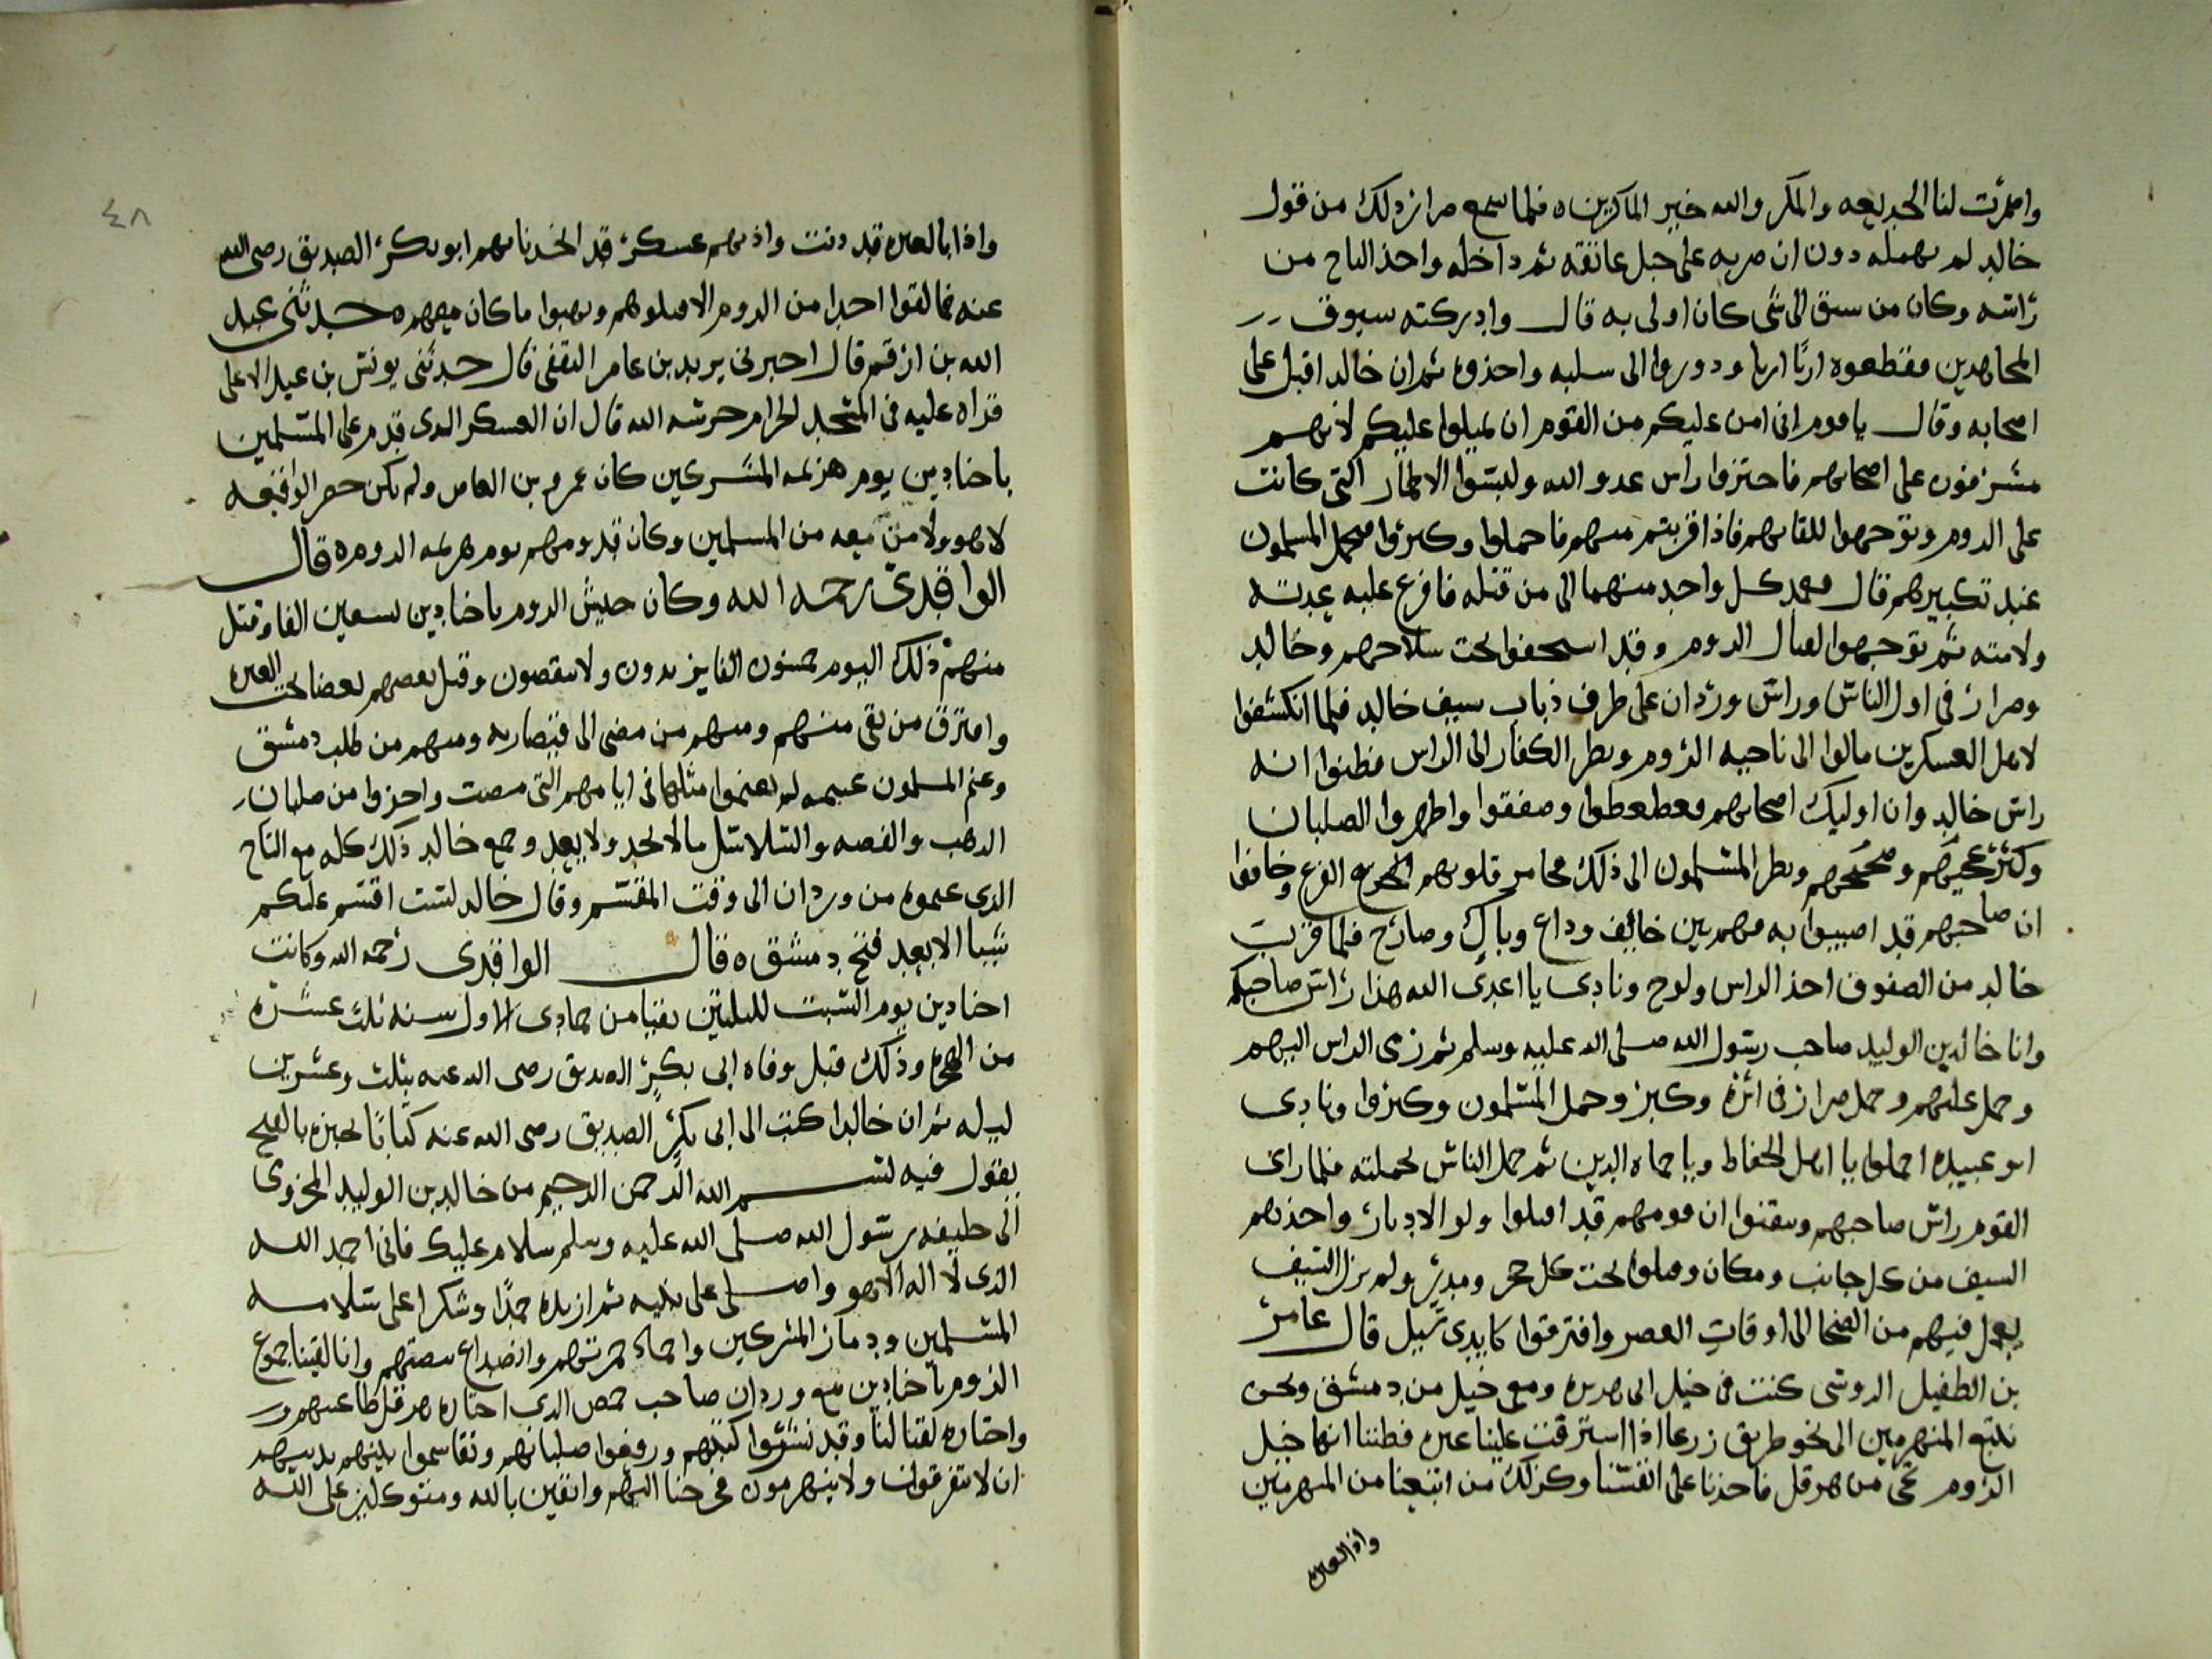 واضمرت لنا الخديعه والمكر والله خير الماكرين ه فلما سمع ضرار ذلك من قول
خالد لم يهمله دون ان ضربه على حبل عاتقه ثم داخله واخذ التاج من
راسه وكان من سبق الى شى كان اولى به قال وادركته سيوف
المجاهدين فقطعوه اربا اربا ودوروا الى سلبه واخذوه ثم ان خالد اقبل على
اصحابه وقال ياقوم انى امن عليكم من القوم ان يميلوا عليكم لانهم
مشرفون على اصحابهم فاحتزوا راس عدو الله ولبسوا الاطمار التى كانت
على الروم وتوجهوا للقايهم فاذا قربتم منهم فاحملوا وكبروا فيحمل المسلمون
عند تكبيرهم قال فعمد كل واحد منهما الى من قتله فافرغ عليه عدته
ولامته ثم توجهوا لقتال الروم وقد استخفوا تحت سلاحهم وخالد
وضرار فى اول الناس وراس وردان على طرف ذباب سيف خالد فلما انكشفوا
لاهل العسكرين مالوا الى ناحيه الروم ونظر الكفار الى الراس فظنوا انه
راس خالد وان اوليك اصحابهم فعطعطوا وصفقوا واظهروا الصلبان
وكثر عجيجهم وضجيجهم ونظر المسلمون الى ذلك فخامر قلوبهم الجزع الفزع وخافوا
ان صاحبهم قد اصيبوا به فهم بين خايف وداع وباك وصارخ فلما قرب
خالد من الصفوف اخذ الراس ولوح ونادى يا اعدى الله هذا راس صاحبكم
وانا خالد بن الوليد صاحب رسول الله صلى الله عليه وسلم ثم رمى الراس اليهم
وحمل عليهم وحمل ضرار فى اثره وكبر وحمل المسلمون وكبروا ونادى
ابو عبيده احملوا يا اهل الحفاظ ويا حماه الدين ثم حمل الناس لحملته فلما راى
القوم راس صاحبهم وتيقنوا ان قومهم قد اقبلوا ولو الادبار واخذهم
السيف من كل جانب ومكان وقتلوا تحت كل حجر ومدر ولم يزل السيف
يعمل فيهم من الضحا الى اوقات العصر وافترقوا كايدى سبل قال عامر
بن الطفيل الدوسى كنت فى خيل ابى هريره ومعى خيل من دمشق ونحن
نتبع المنهزمين الى نحو طريق زرعا اذا استرقت علينا غبره فظننا انها خيل
الروم تجى من هرقل فاخذنا على انفسنا وكذلك من اتبعنا من المنهزمين
واذا الغبره
٤٨
واذا بالغبره قد دنت واذ بهم عسكر قد انجدنا بهم ابو بكر الصديق رضى الله
عنه فما لقوا احدا من الروم الا قتلوهم ونهبوا ما كان معهم ه حدثنى عبد
الله بن ارقم قال اخبرنى يزيد بن عامر الثقفى قال حدثنى يونس بن عبد الاعلى
قراه عليه فى المسجد الحرام حرسه الله قال ان العسكر الذى قدم على المسلمين
باجنادين يوم هزيمه المشركين كان عمرو بن العاص ولم يكن حضر الواقعه
لا هو ولا من معه من المسلمين وكان قدومهم يوم هزيمه الروم ه قال
الواقدى رحمه الله وكان جيش الروم باجنادين تسعين الفا وقتل
منهم ذلك اليوم خمسون الفا يزيدون ولا ينقصون وقتل بعضهم بعضا تحت الغبره
وافترق من بقى منهم ومنهم من مضى الى قيصاريه ومنهم من طلب دمشق
وغنم المسلمون غنيمه لم يغنموا مثلها فى ايامهم التى مضت واخذوا من صلبان
الذهب والفضه والسلاسل ما لا يحد ولا يعد وجمع خالد ذلك كله مع التاج
الذى غنموه من وردان الى وقت المقسم وقال خالد لست اقسم عليكم
شيا الا بعد فتح دمشق ه قال الواقدى رحمه الله وكانت
اجنادين يوم السبت لليلتين بقيا من جمادى الاول سنه ثلث عشره
من الهجره وذلك قبل وفاه ابى بكر الصديق رضى الله عنه بثلث وعشرين
ليله ثم ان خالدا كتب الى ابى بكر الصديق رضى الله عنه كتابا يخبره بالفتح
يقول فيه بسم الله الرحمن الرحيم من خالد بن الوليد المخزومى
الى خليفه رسول الله صلى الله عليه وسلم سلام عليك فانى احمد الله
الذى لا اله الا هو واصلى على نبيه ثم ازيده حمدا وشكرا على سلامه
المسلمين ودمار المشركين واخماد جمرتهم وانصداع بيضتهم وانا لقينا جموع
الروم باجنادين مع وردان صاحب حمص الذى اختاره هرقل طاغيتهم
واختاره لقتالنا وقد نشروا كتبهم ورفعوا صلبانهم وتقاسموا بينهم بدينهم
ان لا يتفرقوا ولا ينهزموا فخرجنا اليهم واثقين بالله ومتوكلين على الله